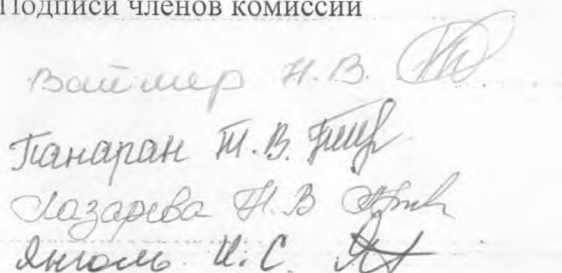 Подписи членов комиссии
Ваймер Н.В.
Панаран Т.В.
Лазарева Н.В
И.С.